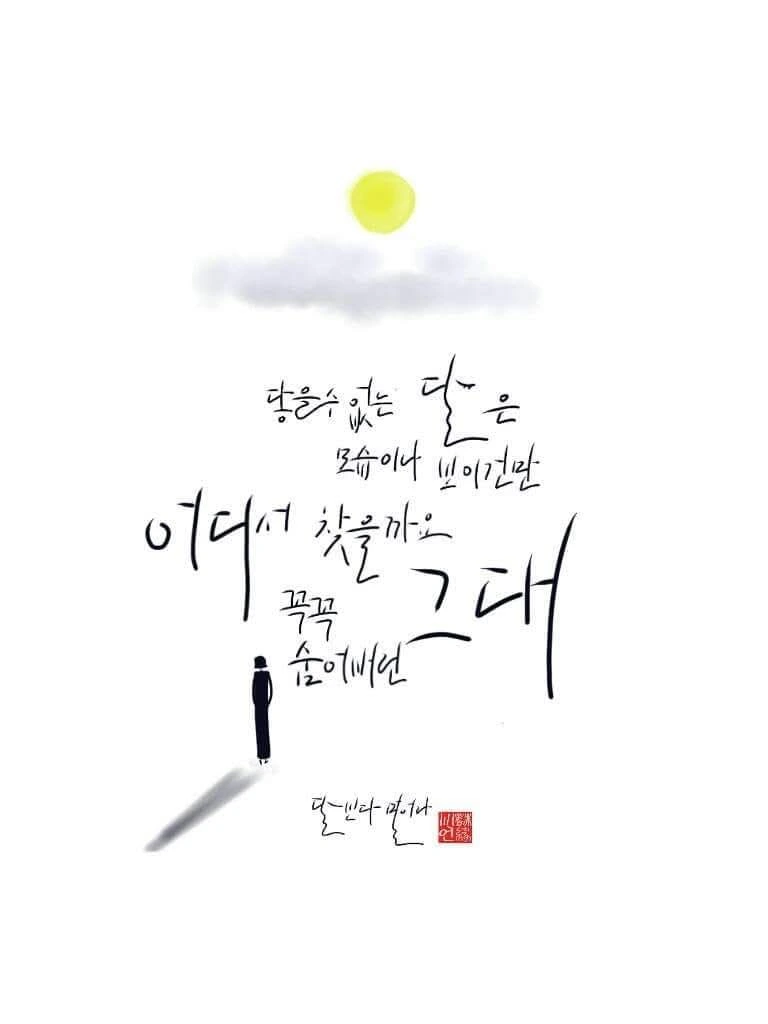 닿을수 없는 달은
모습이나 보이건만
어디서 찾을까요
꼭꼭
숨어버린
그대
달보다 멀어라